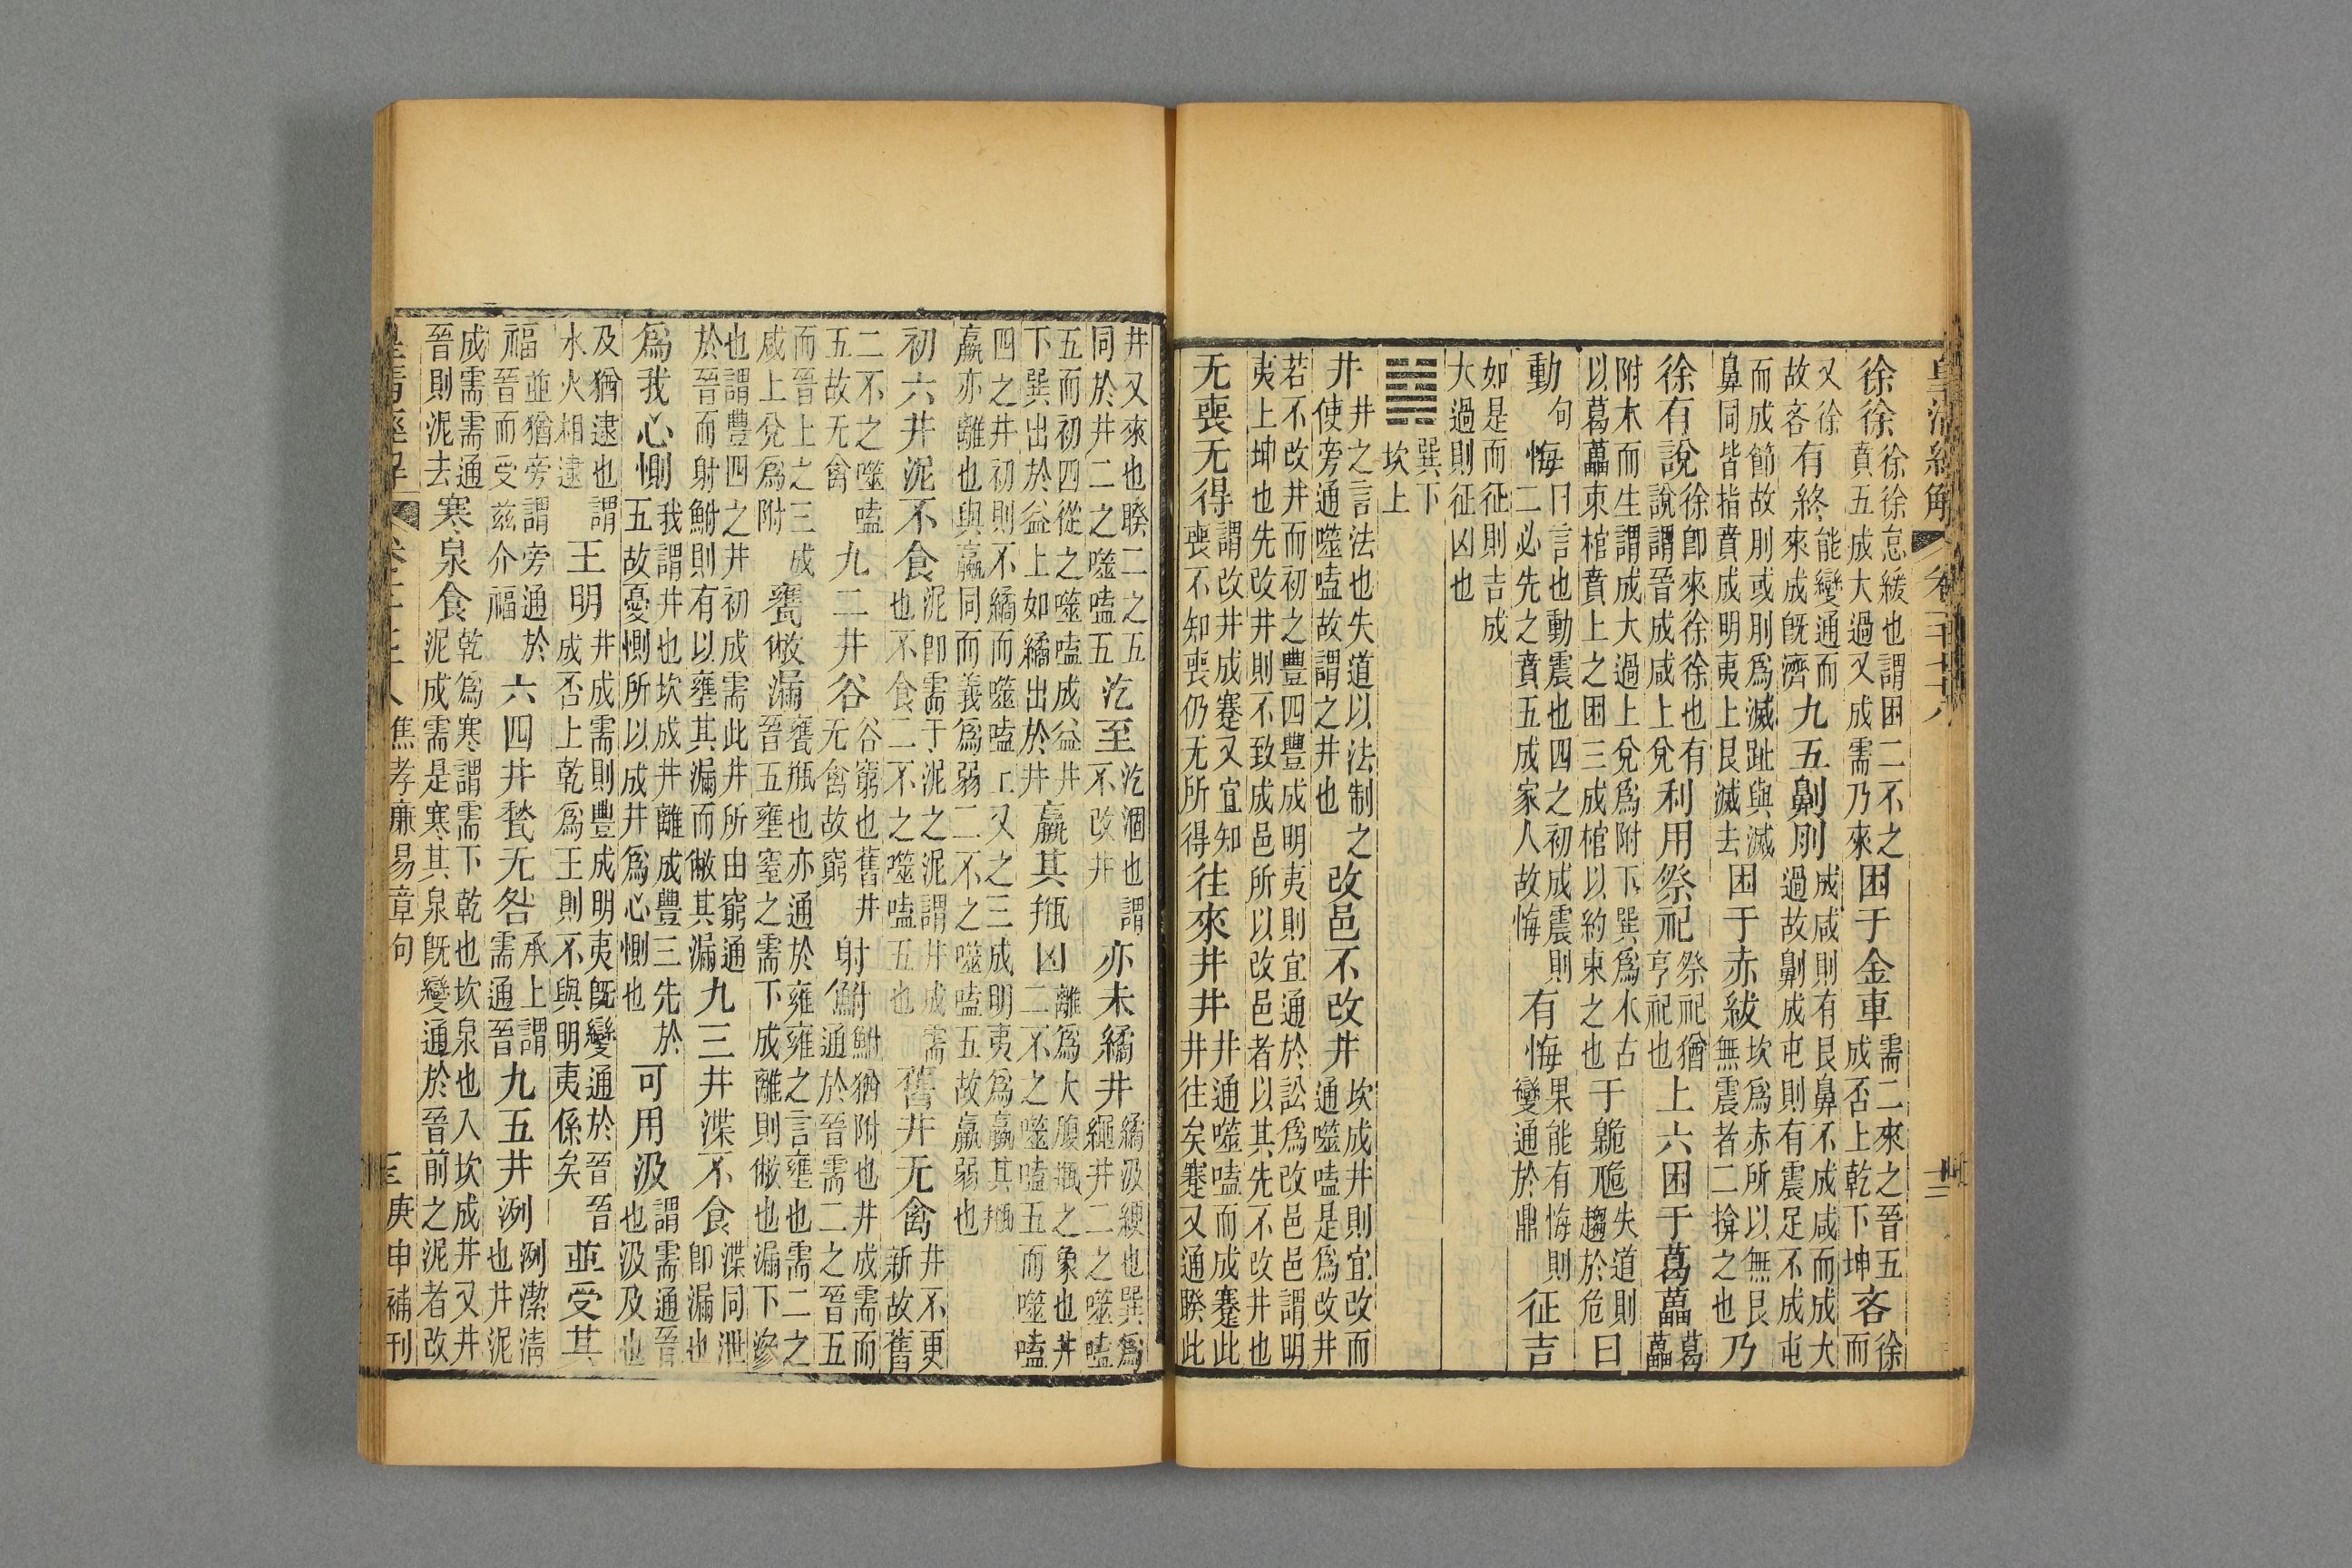 皇清經解 卷
徐徐徐徐怠緩也謂困二不之賁五成大過又成需乃來困于金車需二來之晉五成否上乾下坤吝徐而
又徐故吝有終能變通而來成旣濟九五劓刖成咸則有艮鼻不成咸而成大過故劓成屯則有震足不成屯
而成節故刖或刖爲滅趾與滅鼻同皆指賁成明夷上艮滅去困于赤紱坎爲赤所以無艮無震者二揜之也乃
徐有說徐卽來徐徐也有說謂晉成咸上兌利用祭祀祭祀猶亨祀也上六困于葛藟葛藟
附木而生謂成大過上兌爲附下巽爲木古以葛藟束棺賁上之困三成棺以約束之也于臲卼失道則趨於危曰
動句悔曰言也動震也四之初成震則二必先之賁五成家人故悔有悔果能有悔則變通於鼎征吉
如是而征則吉成大過則征凶也
䷯巽下坎上
井井之言法也失道以法制之使旁通噬嗑故謂之井也改邑不改井坎成井則宜改而通噬嗑是爲改井
若不改井而初之豐四豐成明夷則宜通於訟爲改邑邑謂明夷上坤也先改井則不致成邑所以改邑者以其先不改井也
无喪无得謂改井成蹇又宜知喪不知喪仍无所得往來井井井通噬嗑而成蹇此井往矣蹇又通睽此
井又來也睽二之五同於井二之噬嗑五汔至汔涸也謂不改井亦未繘井繘汲綆也巽爲繩井二之噬嗑
五而初四從之噬嗑成益井下巽出於益上如繘出於井羸其瓶凶離爲大腹瓶之象也井二不之噬嗑五而噬嗑
四之井初則不繘而噬嗑上又之三成明夷爲羸其瓶羸亦離也與羸同而義爲弱二不之噬嗑五故羸弱也
初六井泥不食泥卽需于泥之泥謂井成需也不食二不之噬嗑五也舊井无禽井不更新故舊
二不之噬嗑五故无禽九二井谷谷窮也舊井无禽故窮射鮒鮒猶附也井成需而通於晉需二之晉五
而晉上之三成咸上兌爲附甕敝漏甕瓶也亦通於雍雍之言壅也需二之晉五壅窒之需下成離則敝也漏下滲
也謂豐四之井初成需此井所由窮通於晉而射鮒則有以壅其漏而敝其漏九三井渫不食渫同泄卽漏也
爲我心惻我謂井也坎成井離成豐三先於五故憂惻所以成井爲心惻也可用汲謂需通晉也汲及也
及猶逮也謂水火相逮王明井成需則豐成明夷旣變通於晉晉成否上乾爲王則不與明夷係矣並受其
福並猶旁謂旁通於晉而受茲介福六四井甃无咎承上謂需通晉九五井洌洌潔淸也井泥
成需需通晉則泥去寒泉食乾爲寒謂需下乾也坎泉也入坎成井又井泥成需是寒其泉旣變通於晉前之泥者改
皇清經解 焦孝廉易章句 庚申補刊